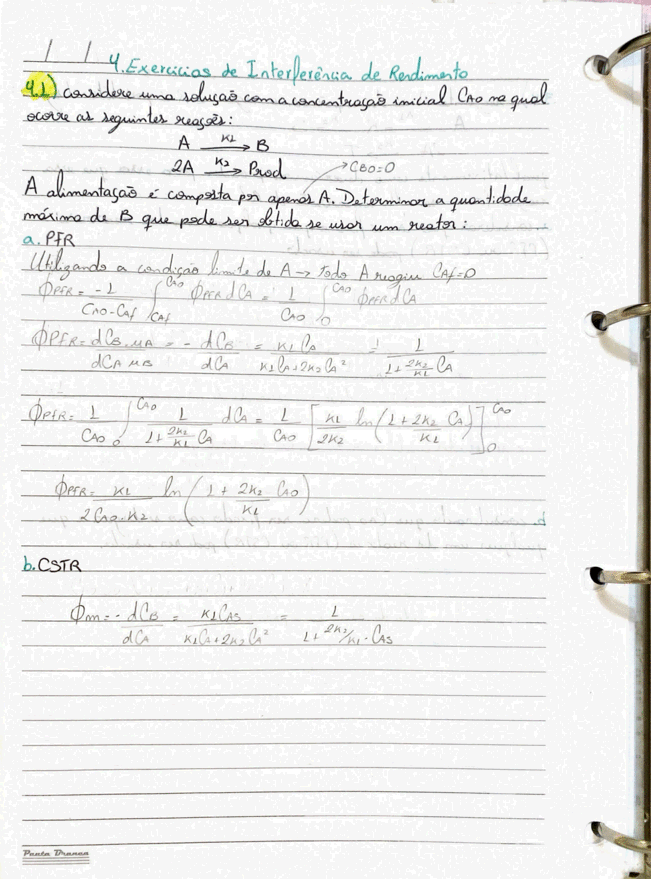 4. Exercícios de Interferência de Rendimento
4.1) Considere uma solução com a concentração inicial CA0 na qual
ocorre as seguintes reações:
A —K1→ B
2A —K2→ Prod
→ CB0=0
A alimentação é composta por apenas A. Determinar a quantidade
máxima de B que pode ser obtida se usar um reator:
a. PFR
Utilizando a condição limite de A → todo A reagiu CAf=0
ΦPFR = -1/(CA0-CAf) ∫_{CAf}^{CA0} ΦPFR dCA = 1/CA0 ∫_0^{CA0} ΦPFR dCA
ΦPFR = dCB.MA/(dCA MB) = - dCB/dCA = K1CA/(K1CA+2K2CA²) = 1/(1+(2K2/K1)CA)
ΦPFR = 1/CA0 ∫_0^{CA0} 1/(1+(2K2/K1)CA) dCA = 1/CA0 [K1/2K2 ln(1+(2K2/K1)CA)]_0^{CA0}
ΦPFR = K1/(2CA0.K2) ln(1+(2K2/K1)CA0)
b. CSTR
Φm = - dCB/dCA = K1CAS/(K1CA+2K2CA²) = 1/(1+2K2/K1.CAS)
Ponto Branco